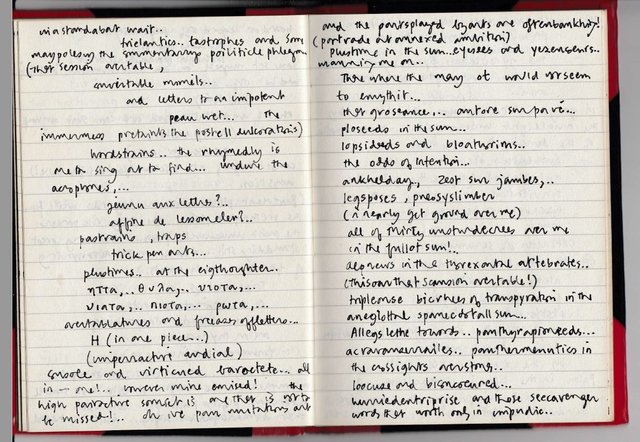 in a standabat wait..
trielantics.. tastrophes and some
maypolesyn the commentariny poiliticle phlegm
(that session avertable,
invistable mimels..
and letters to an impotent
peau wet... the
immermess pretaints the postell eulcorations)
hordstrains.. the rhymedly is
meta sing art to find... undure the
acrophones,...
genuu aux lethes?..
affine de lessomeler?..
pastrains, traps
trick pen arts...
plustimes.. at the eigthoughter..
ηττα,.. θυλα,.. υιοτα,...
νιατα,.. πιοτα,... ρωτα,...
avertablatures and freezes of letters...
H (in one piece...)
(impervactive audial)
console and virticued baroctete... all
in — one!.. however mine emised! the
high pairactive somset is one that is not to
be missed!... oh ive pain imitations ant
and the parts played by ants are often bankhiy!
(portrade at annered ambition)
plustime in the sun.. eyesees and yesengeurs..
manning me on..
There where the may ot would us seem
to emythit...
that groseance,.. autore sun pavé...
ploseeds in the sun...
lopsideeds and bloathurims..
the odds of Intention...
ankhelday, zest sur jambes,..
legsposes, pneosyslimber
(in nearly get ground over me)
all of thirty unstundecrees over me
in the full of sun!..
aepneus in the thyrexontal attebrates..
(This oar that scansion avertable!)
triplemuse bicrhees of transpyration in the
aneglothe spanecdotall sun...
Allegs lethe towards.. panthyrapioneeds...
acravamernailes.. panthermenutics in
the crossights overstong..
loecuse and bismcoured...
hurriedentriprise and those seccavenger
words that worth only in impundic..